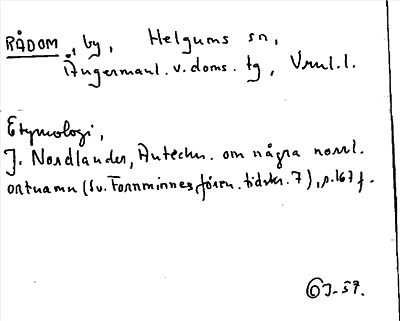 RÅDOM, by, Helgums sn,
Ångermanl. v. doms. tg, Vnl. l.
Etymologi,
J. Nordlander, Anteckn. om några norrl.
ortnamn (Sv. Fornminnesfören. tidskr. 7), s. 167 f.
J-57.